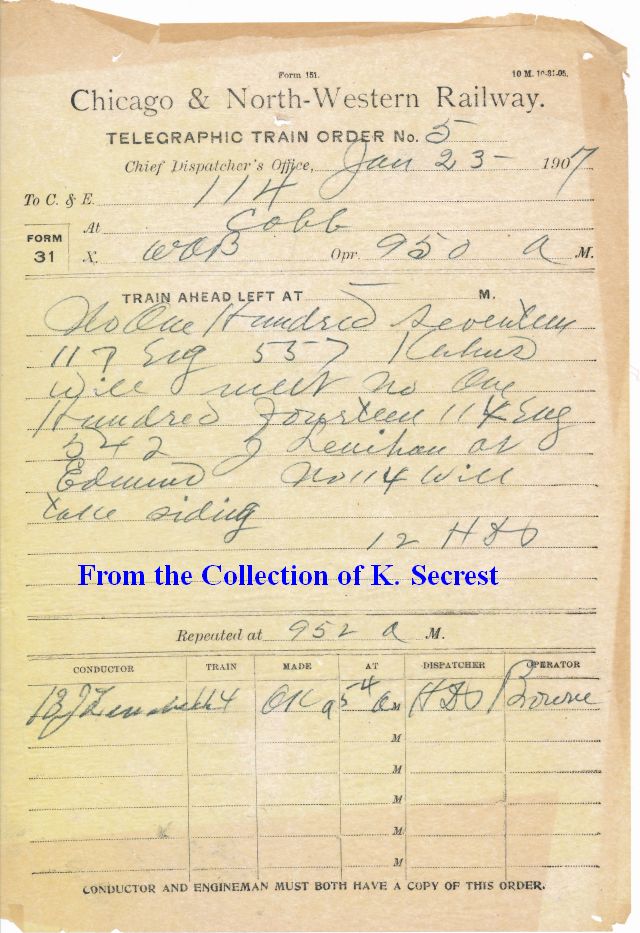 Form 151.
10 M. 10-31-05.
Chicago & North-Western Railway.
TELEGRAPHIC TRAIN ORDER No. 5
Chief Dispatcher's Office, Jan 23 - 1907
To C. & E. 114
FORM 31
At Cobb
X. Opr. 950 a M.
TRAIN AHEAD LEFT AT — M.
No One Hundred seventeen
117 Eng 557
will meet No One
Hundred fourteen 114 Eng
542 Lenihan at
Edmund No 114 will
take siding
12 HDO
From the Collection of K. Secrest
Repeated at 952 a M.
CONDUCTOR TRAIN MADE AT DISPATCHER OPERATOR
114 OK 954 a M HDO Browne
M
M
M
M
M
CONDUCTOR AND ENGINEMAN MUST BOTH HAVE A COPY OF THIS ORDER.